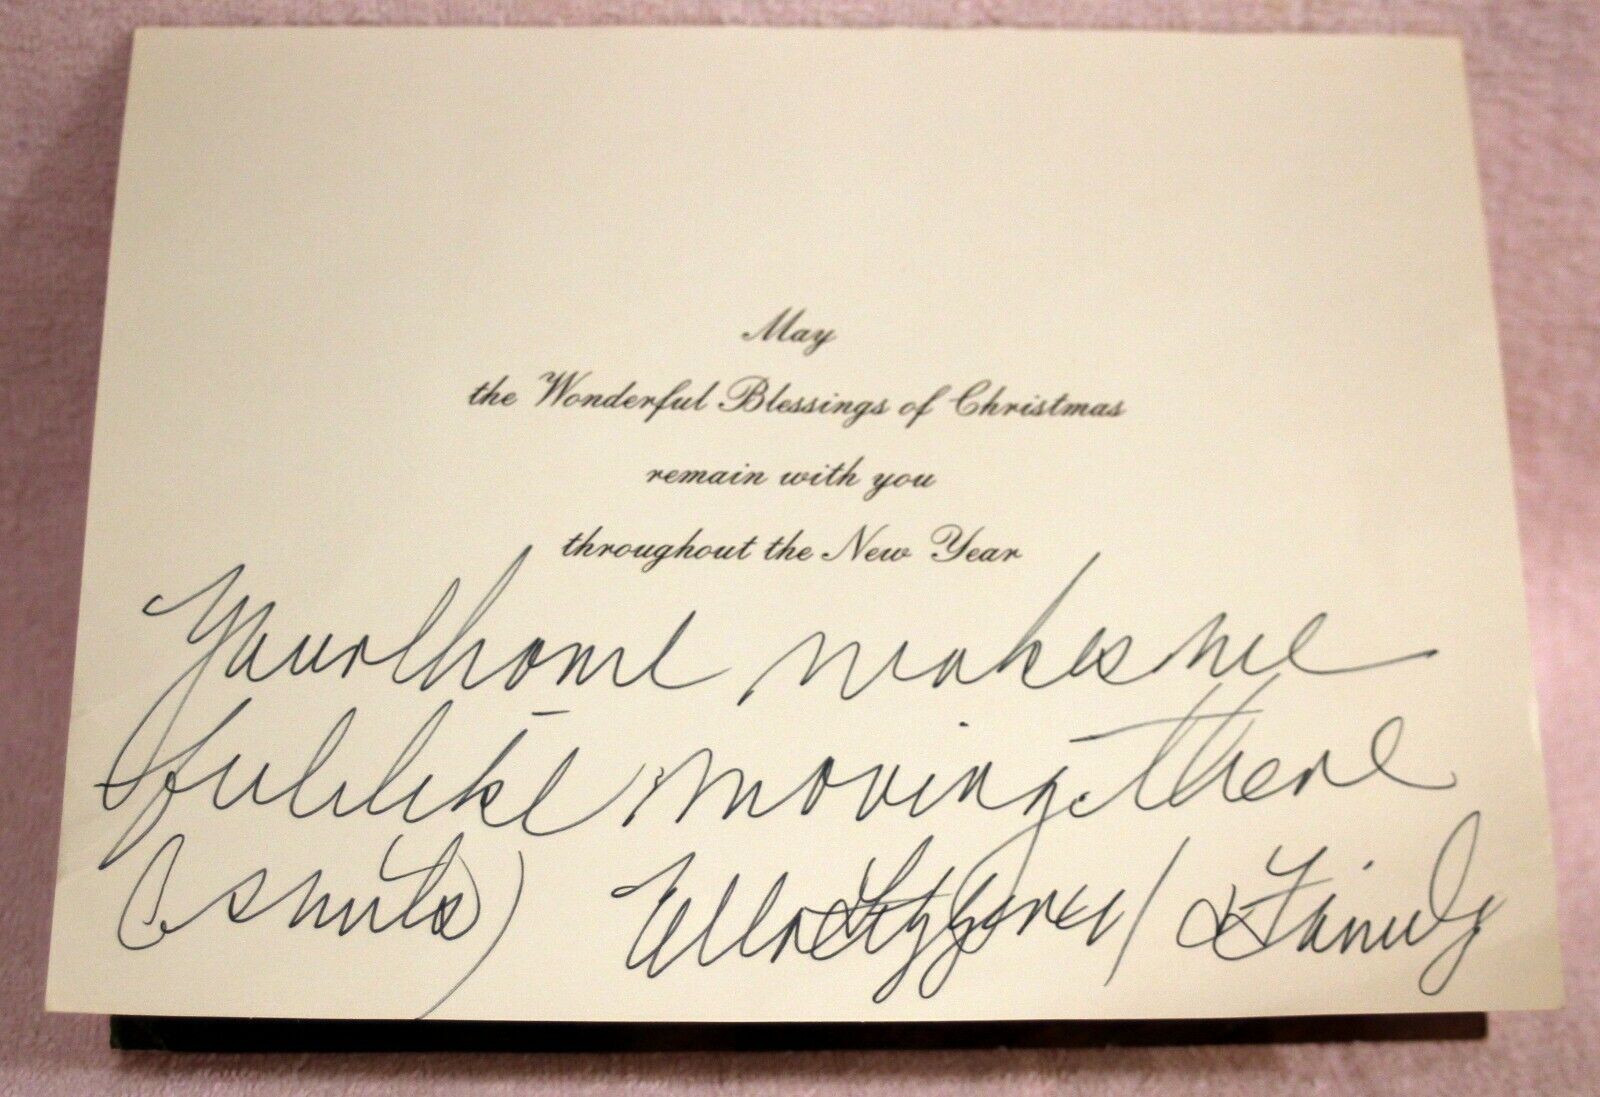 May
the Wonderful Blessings of Christmas
remain with you
throughout the New Year
Your home makes me
feel like moving there
(smile) Ella Fitzgerald & Family